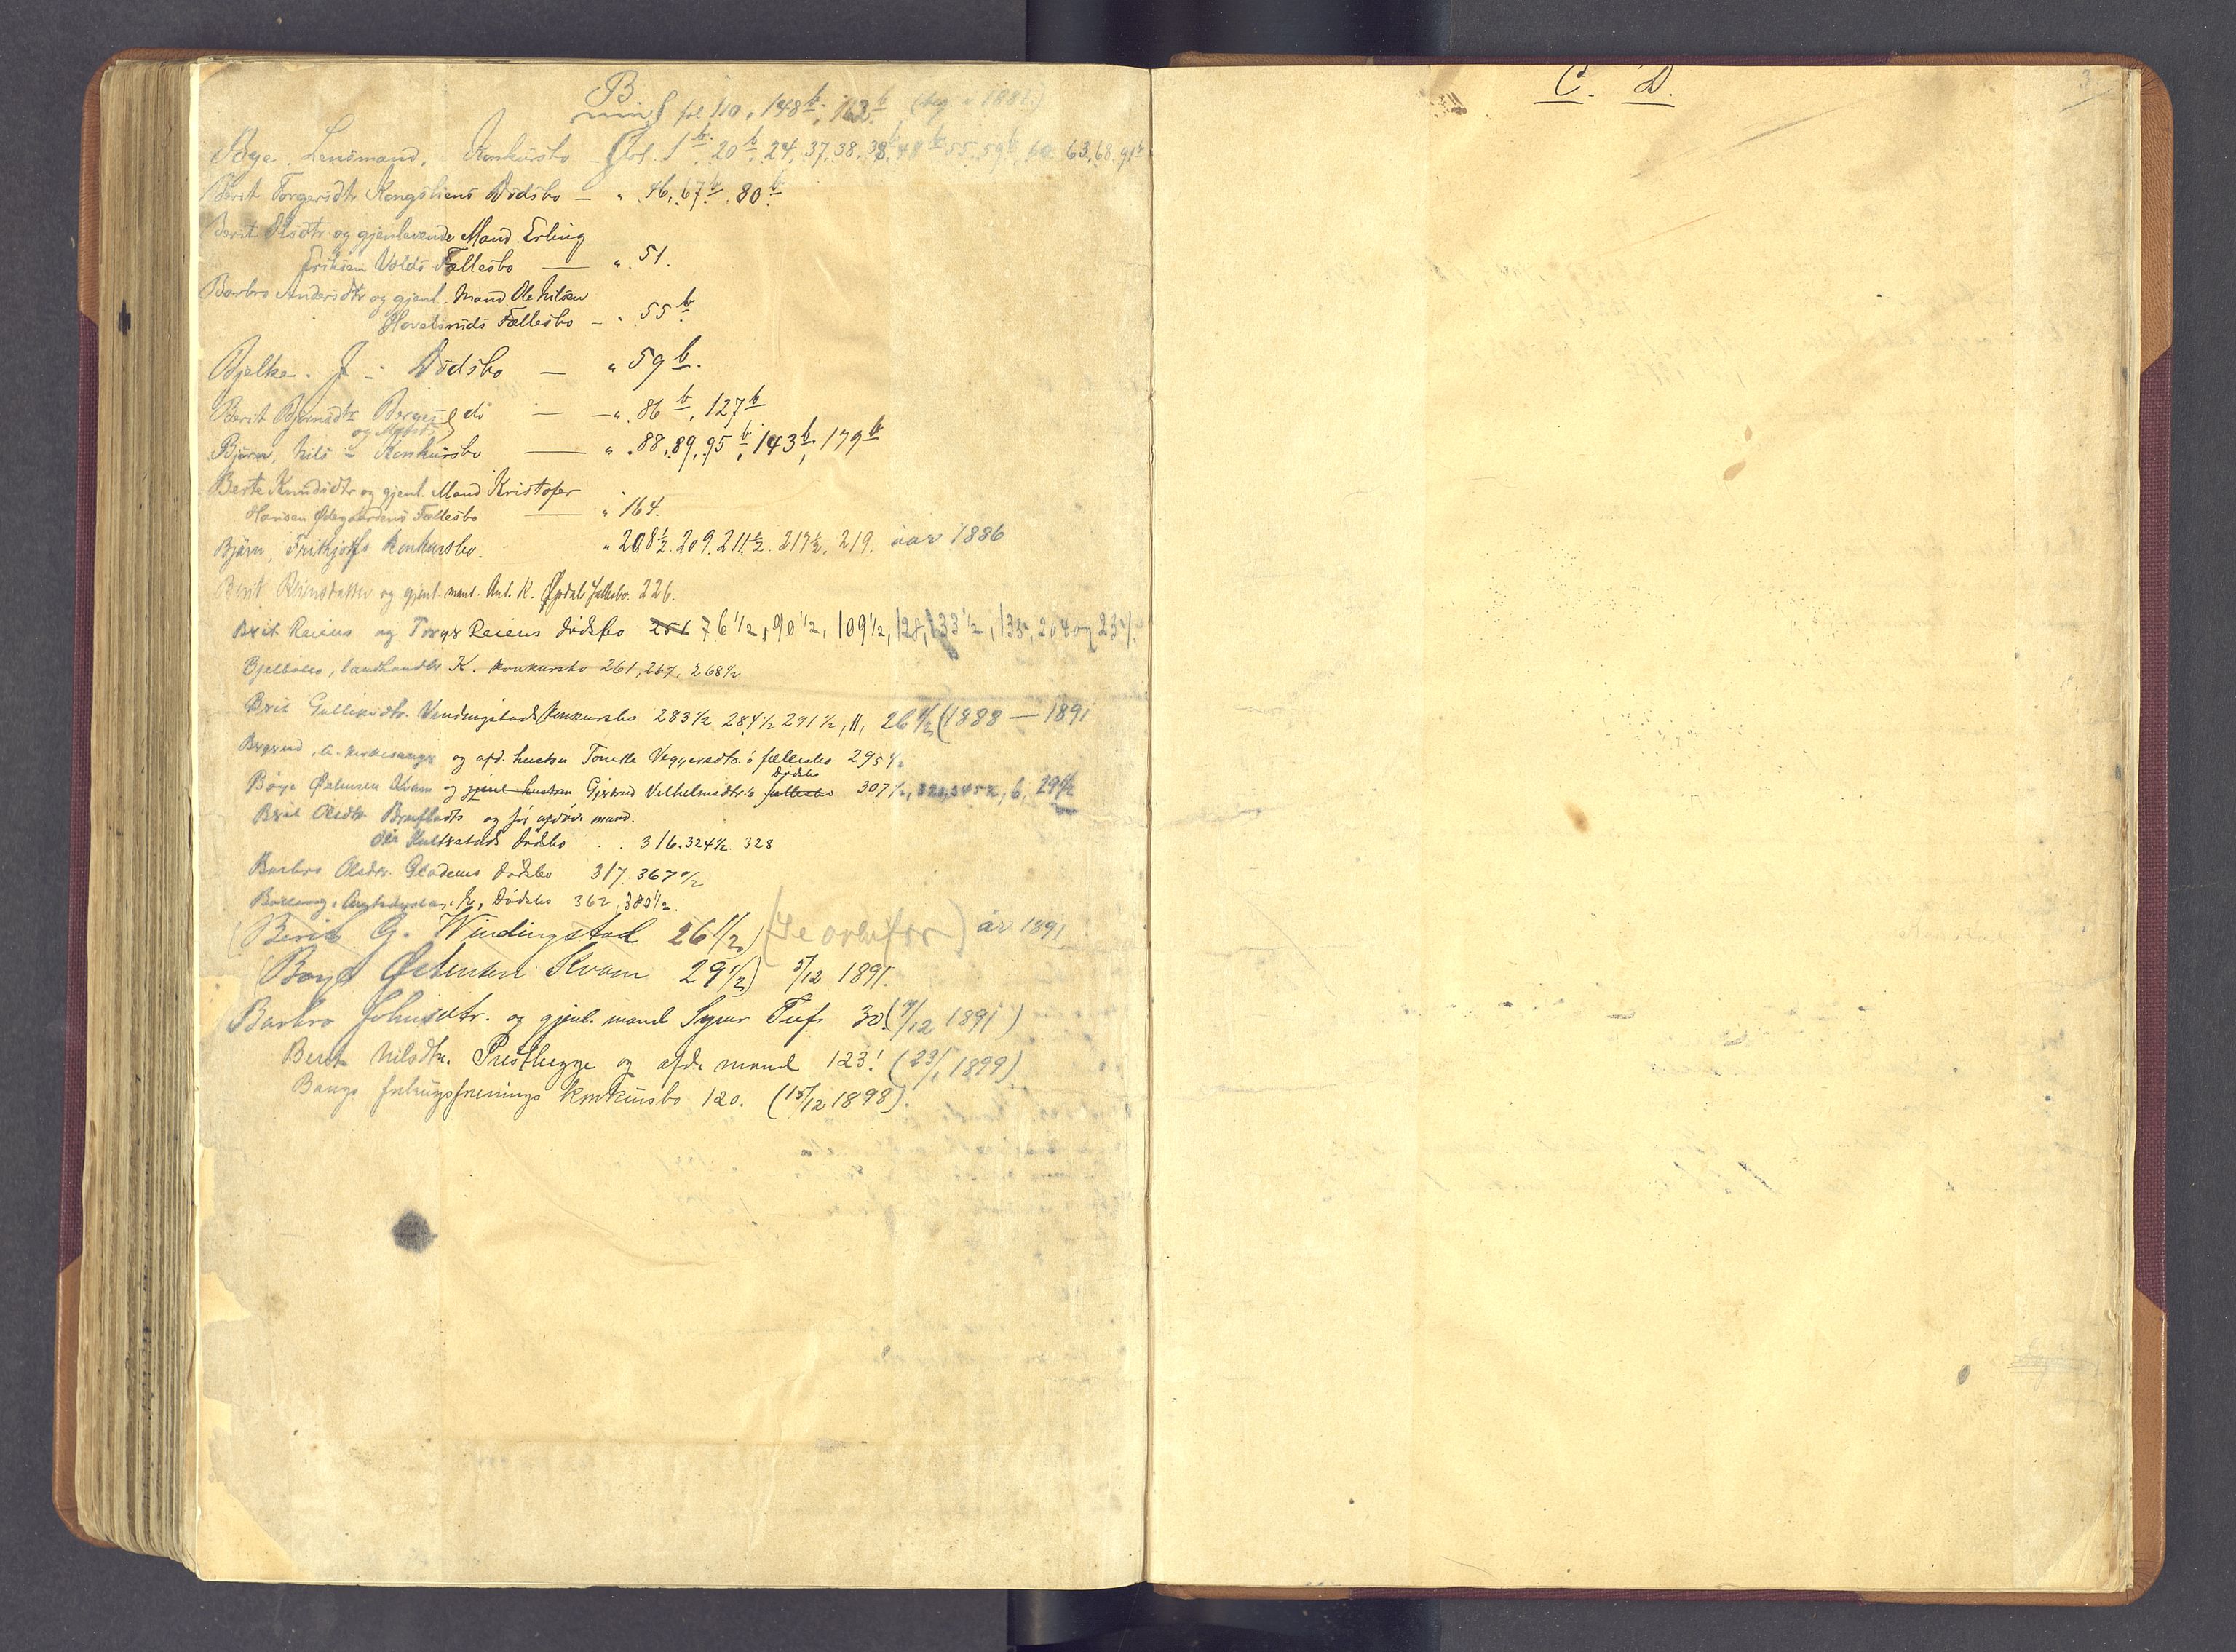 B
fol 110, 148b, 163b (beg. i 1881)
Bye. Lensmand. Konkursbo Fol. 1b, 20b, 24, 37, 38, 38, 48b 55. 59b, 60 63, 68. 91b
Berit Torgersdtr Kongsliens Dødsbo — „ 46, 67b, 80b
Berit Olsdtr og gjenlevende Mand Erling
Eriksen Volds Fællesbo — „ 51.
Barbro Andersdtr og gjenl. Mand Ole Nilsen
Hovelsruds Fællesbo — „ 55b
Bjelke. J — Dødsbo — „ 59b.
Berit Bjørnsdtr Berges do — „ 86b, 127b
og Mands
Bjørn, Nils — Konkursbo — „ 88, 89, 95b, 143b, 179b
Berte Knudsdtr og gjenl. Mand Kristofer
Hansen Ødegaardens Fællesbo — „ 164.
Bjørn, Frithjofs Konkursbo. „ 208½. 209. 211½. 217½. 219. aar 1886
Berit og gjenl. mand. K. Opdals fællesbo. 226.
Berit Reiens og Torger Reiens dødsbo 251 76½, 90½, 109½, 128, 133½, 135, 204 og 23
landhandler K. konkursbo 261, 267, 268½
Berit Gulliksdtr. Vindingstads konkursbo 283½ 284½ 291½, 11, 26½ (1888 — 1891
og afd. hustru Tonette Veggersdtr.s fællesbo 295½
dødsbo
Boye Østensen Kvam og gjenl. hustru Gjertrud Vilhelmsdtr.s fællesbo 307½, 321, 345½, 6, 29½
Berit Olsdtr. Bruflats og før afdøde mand.
dødsbo . . 316. 324½. 328
Barbro Olsdtr. Gladens dødsbo 317. 367½
dødsbo 362, 380½.
(Berit G. Windingstad 26½) (se ovenfor) år 1891
(Boye Østensen Kvam 29½) 5/12 1891.
Barbro Johnsdtr. og gjenl. mand Syver Tufs 30. (7/12 1891)
Berit Nilsdtr. Presthegge og afd. mand 123! (23/1 1899)
Bangs forbrugsforenings konkursbo 120. (15/12 1898).
C. D.
3